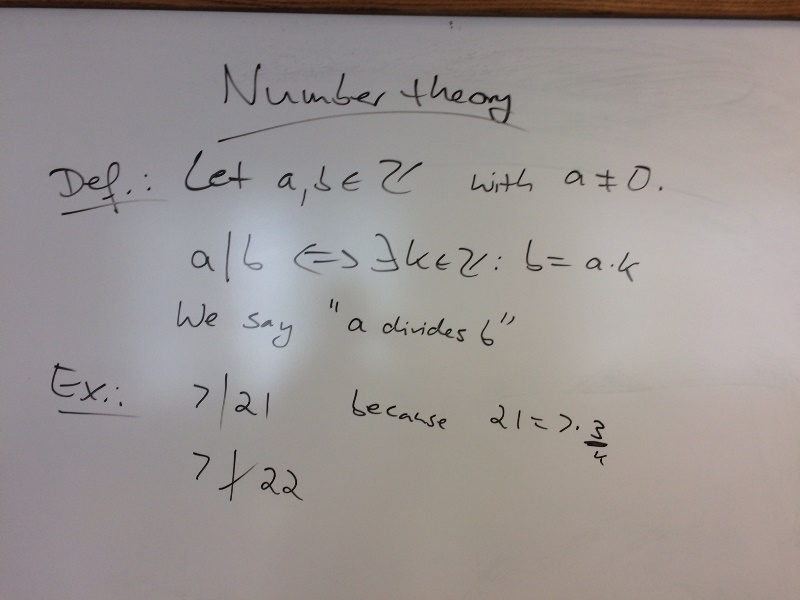 Number theory
Def.: Let a, b ∈ ℤ with a ≠ 0.
a|b ⇔ ∃k∈ℤ: b = a·k
We say "a divides b"
Ex.: 7|21 because 21 = 7·3
k
7∤22